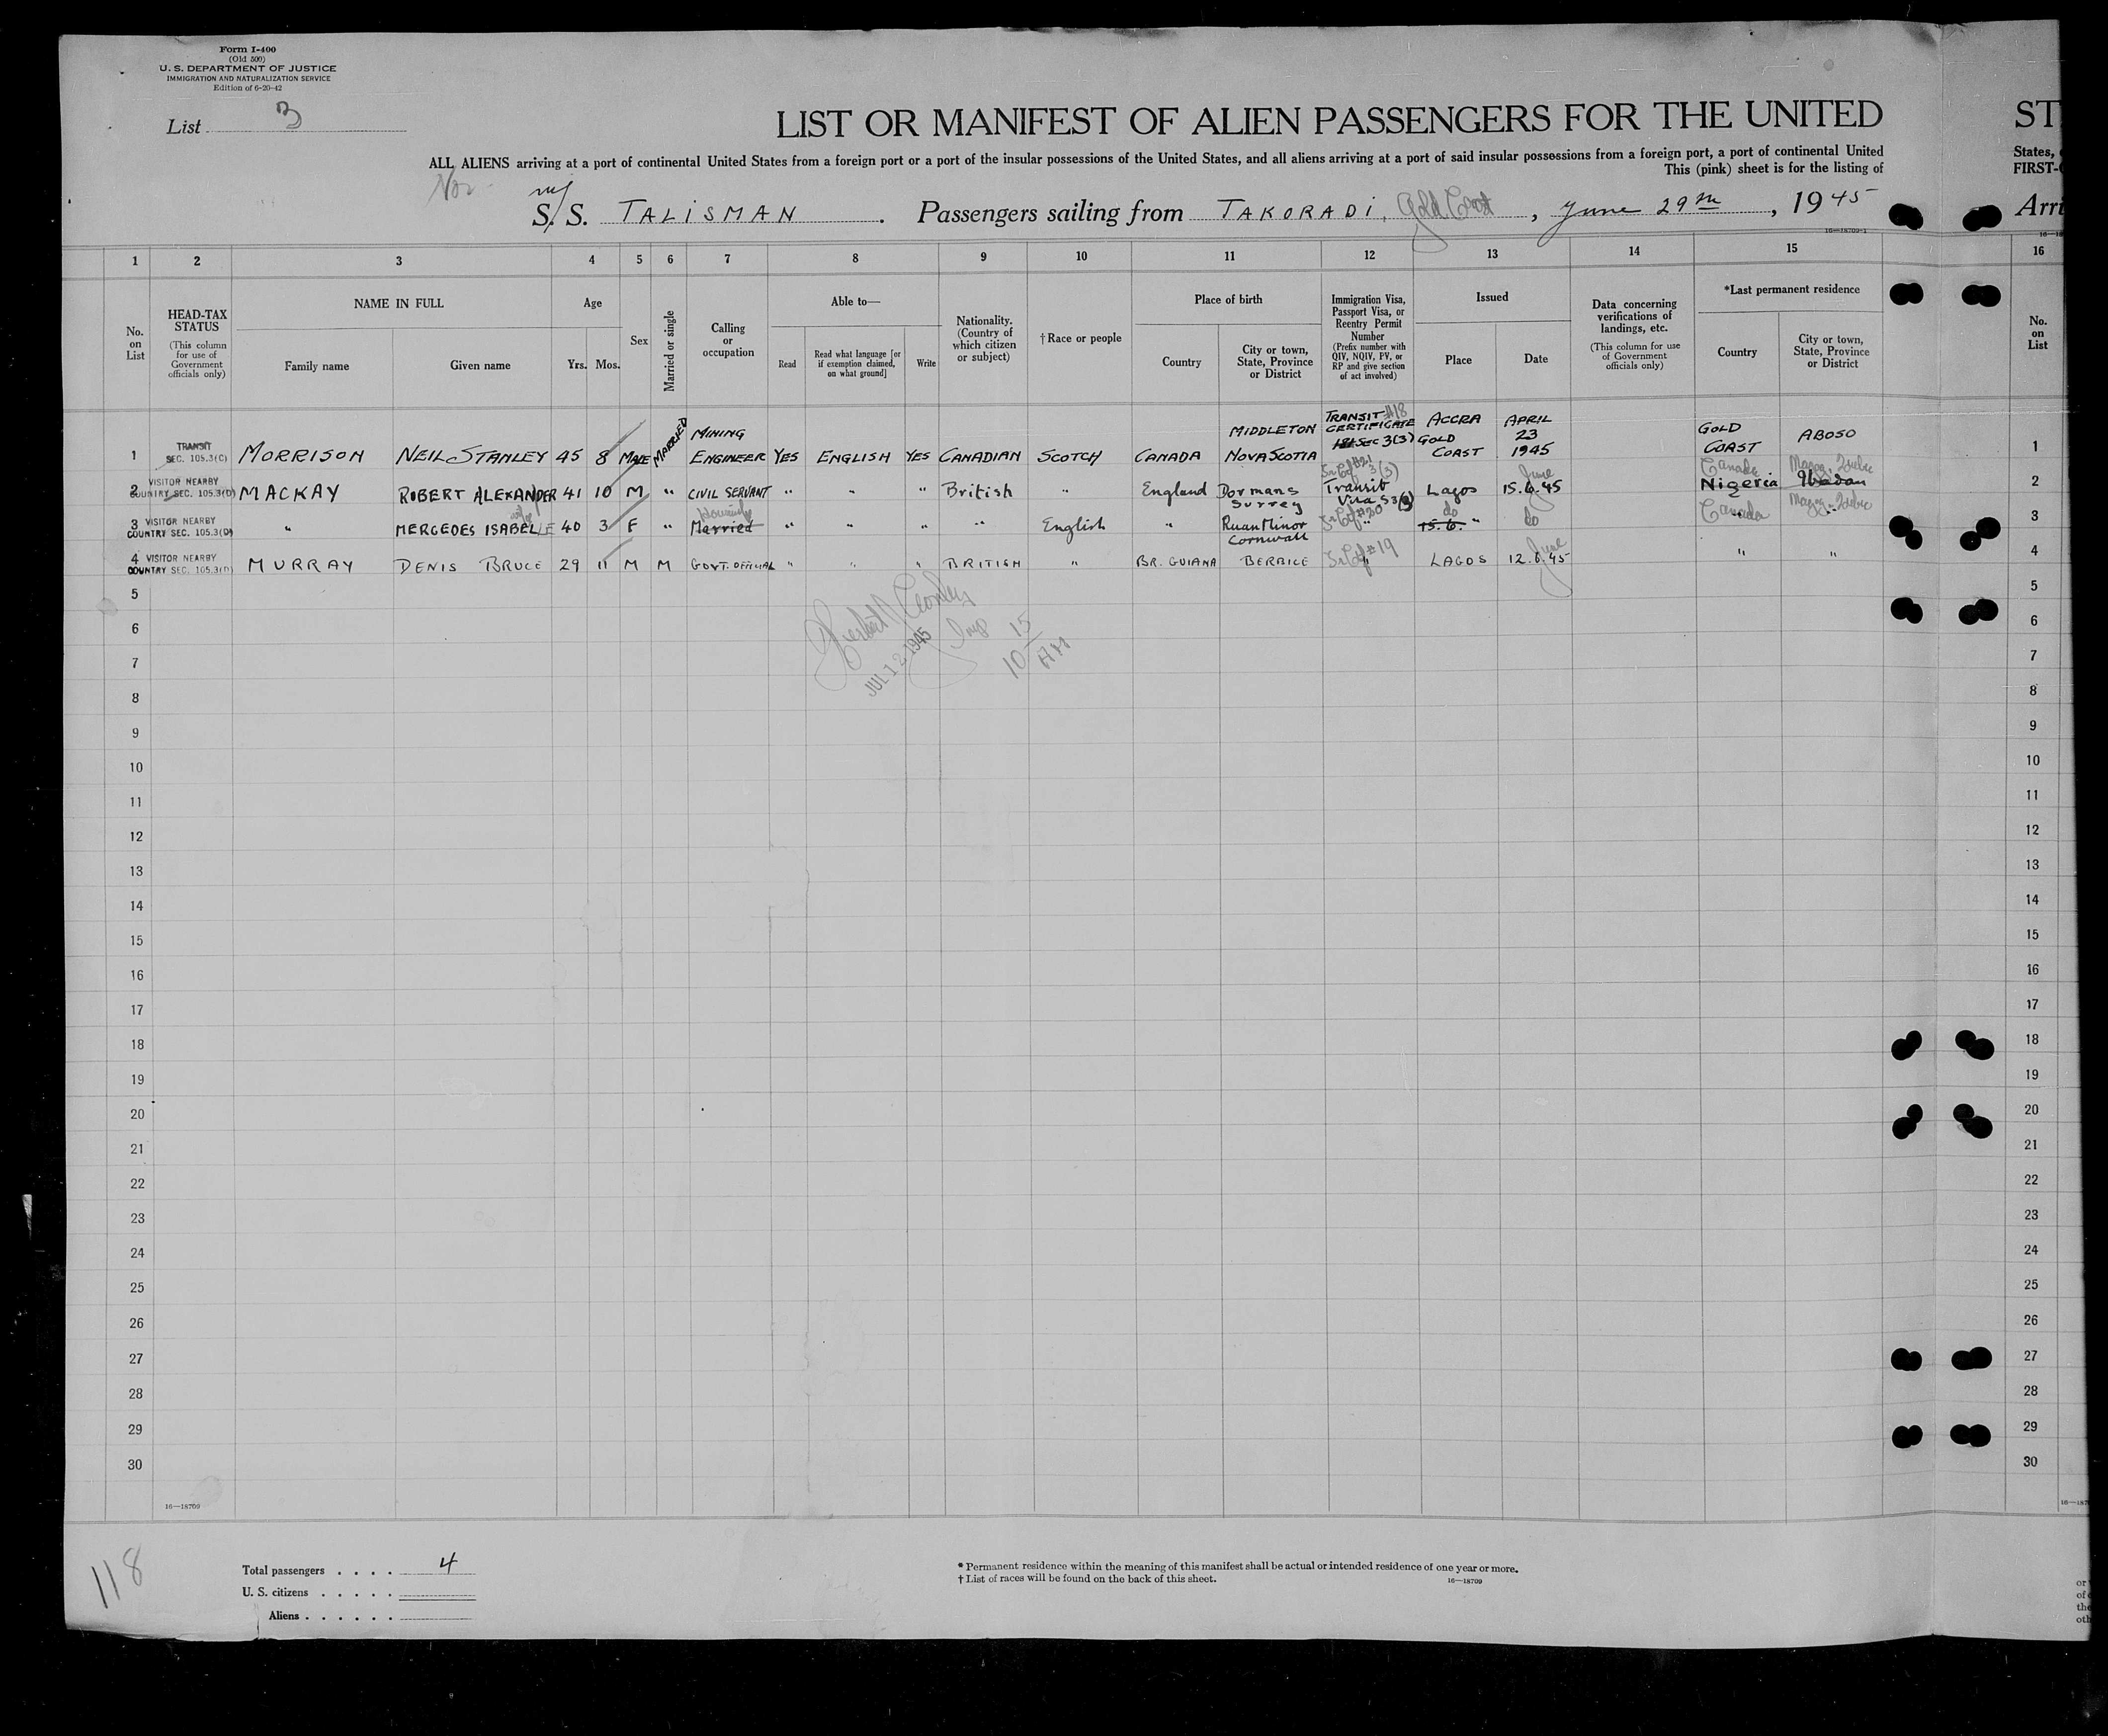 Form I-400
(Old 500)
U. S. DEPARTMENT OF JUSTICE
IMMIGRATION AND NATURALIZATION SERVICE
Edition of 6-20-42
List 3
LIST OR MANIFEST OF ALIEN PASSENGERS FOR THE UNITED ST
ALL ALIENS arriving at a port of continental United States from a foreign port or a port of the insular possessions of the United States, and all aliens arriving at a port of said insular possessions from a foreign port, a port of continental United States,
This (pink) sheet is for the listing of FIRST-
Nor
m/
S. S. TALISMAN . Passengers sailing from TAKORADI, Gold Coast , June 29th , 1945 Arri
16—18709-1
1 2 3 4 5 6 7 8 9 10 11 12 13 14 15 16
No. on List
HEAD-TAX STATUS
(This column for use of Government officials only)
NAME IN FULL
Family name Given name
Age
Yrs. Mos.
Sex
Married or single
Calling or occupation
Able to—
Read
Read what language [or if exemption claimed, on what ground]
Write
Nationality. (Country of which citizen or subject)
†Race or people
Place of birth
Country
City or town, State, Province or District
Immigration Visa, Passport Visa, or Reentry Permit Number
(Prefix number with QIV, NQIV, PV, or RP and give section of act involved)
Issued
Place Date
Data concerning verifications of landings, etc.
(This column for use of Government officials only)
*Last permanent residence
Country
City or town, State, Province or District
No. on List
1 TRANSIT SEC. 105.3(C) MORRISON NEIL STANLEY 45 8 MALE MARRIED MINING ENGINEER YES ENGLISH YES CANADIAN SCOTCH CANADA MIDDLETON NOVA SCOTIA TRANSIT #18 CERTIFICATE SEC 3(3) ACCRA GOLD COAST APRIL 23 1945 GOLD COAST ABOSO 1
2 VISITOR NEARBY COUNTRY SEC. 105.3(D) MACKAY ROBERT ALEXANDER 41 10 M " CIVIL SERVANT " " " British " England Dormans Surrey #21 3(3) Transit Visa S3(3) Lagos 15.6.45 June Canada Nigeria Ibadan 2
3 VISITOR NEARBY COUNTRY SEC. 105.3(D) " MERCEDES ISABELLE wife 40 3 F " Married " " " " English " Ruan Minor Cornwall #20 " 15.6. " do do Canada " " 3
4 VISITOR NEARBY COUNTRY SEC. 105.3(D) MURRAY DENIS BRUCE 29 11 M M GOVT. OFFICIAL " " " BRITISH " BR. GUIANA BERBICE #19 " LAGOS 12.6.45 June " " 4
5 5
6 6
7 7
JUL 12 1945
Insp
10 15 AM
8 8
9 9
10 10
11 11
12 12
13 13
14 14
15 15
16 16
17 17
18 18
19 19
20 20
21 21
22 22
23 23
24 24
25 25
26 26
27 27
28 28
29 29
30 30
16—18709
118
Total passengers . . . . 4
U. S. citizens . . . . .
Aliens . . . . . .
* Permanent residence within the meaning of this manifest shall be actual or intended residence of one year or more.
† List of races will be found on the back of this sheet.
16—18709